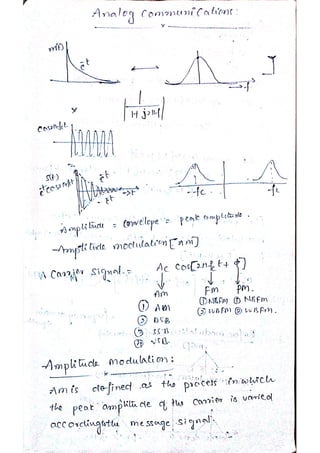 Analog Communications:
m(t)
e^-t
f
x
|1/(1+j2πf)|
cos ωct
s(t)
e^-t cos ωct
e^-t
-e^-t
t
-fc
fc
Amplitude = envelope = peak amplitude.
-Amplitude modulation [AM]
Carrier signal = Ac cos[2πfct + φ]
Am Fm Pm.
① AM ① NBFM ① NBPM
② DSB ② WBFM ② WBPM.
③ SSB
④ VSB
-Amplitude modulation:
Am is defined as the process in which
the peak amplitude of the carrier is varied
according to the message signal.